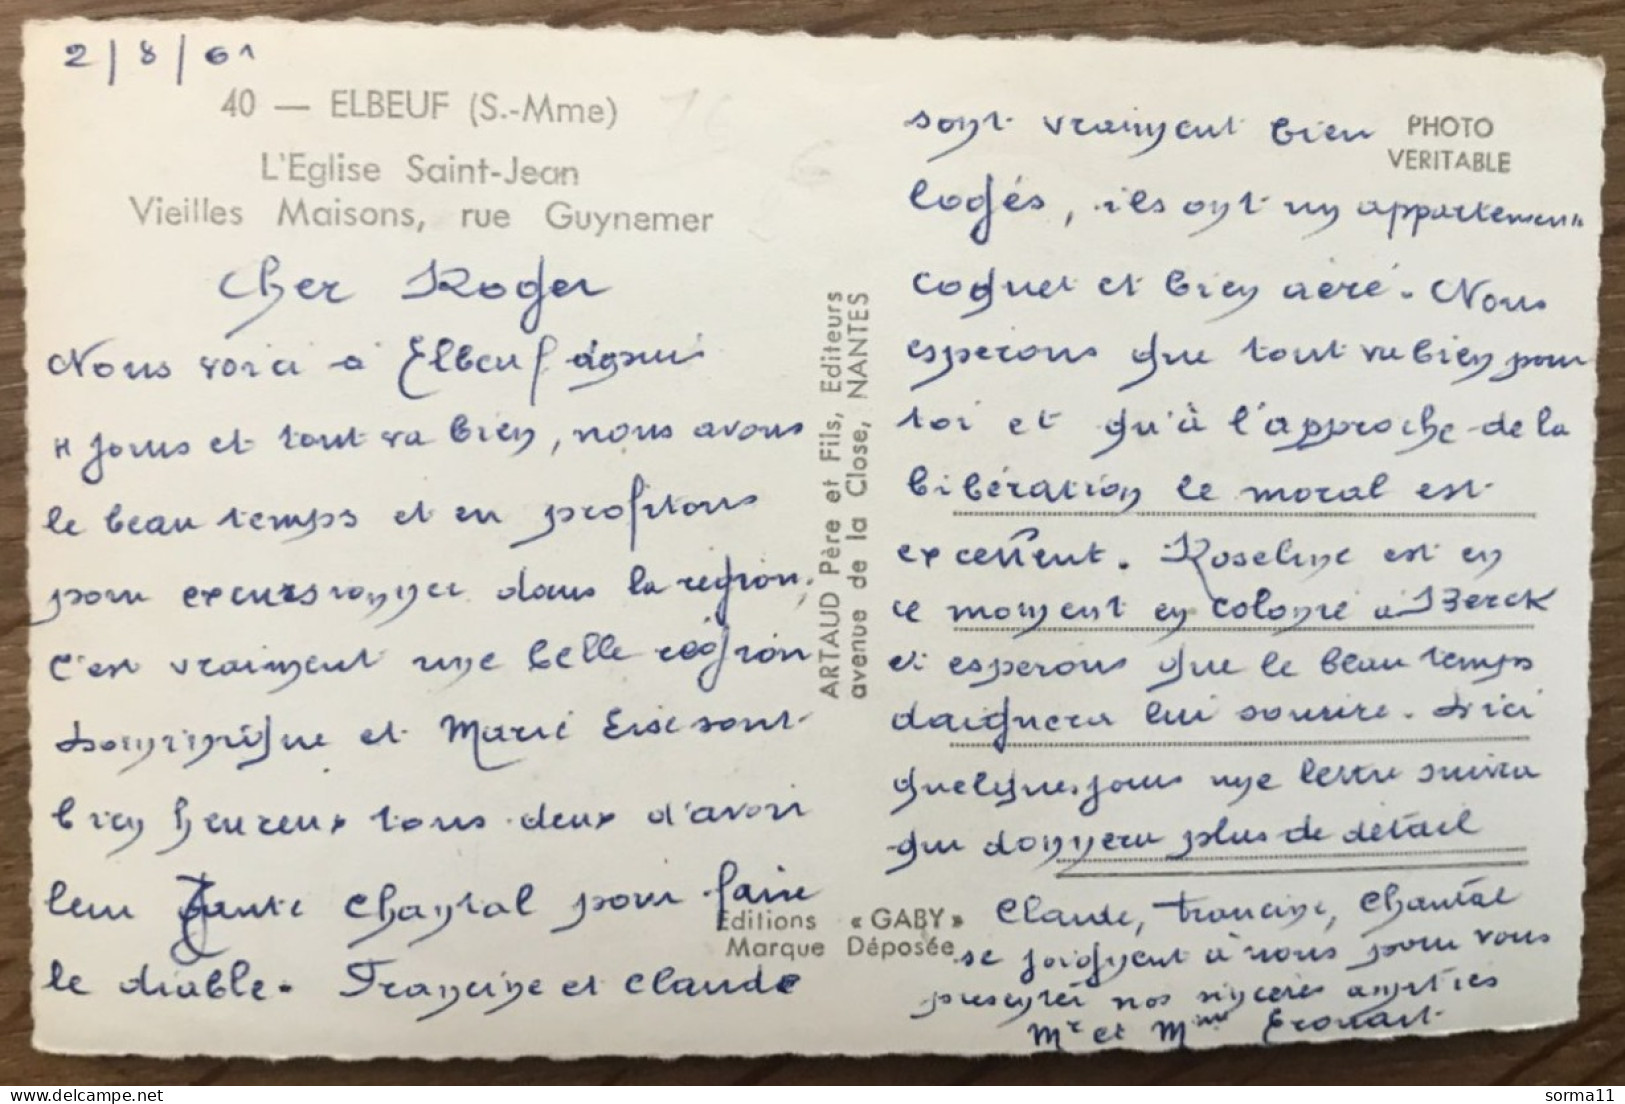 2/8/61
40 — ELBEUF (S.-Mme)
L'Eglise Saint-Jean
Vieilles Maisons, rue Guynemer
Cher Roger
Nous voici à Elbeuf depuis
4 jours et tout va bien, nous avons
le beau temps et en profitons
pour excursionner dans la région,
c'est vraiment une belle région
Dominique et Marie sont
bien heureux tous deux d'avoir
leur Tante Chantal pour faire
le diable. Francine et Claude
ARTAUD Père et Fils, Editeurs
avenue de la Close, NANTES
Editions « GABY »
Marque Déposée
PHOTO
VERITABLE
sont vraiment bien
logés, ils ont un appartement
coquet et bien aéré. Nous
esperons que tout va bien pour
toi et qu'à l'approche de la
libération le moral est
excellent. Roseline est en
ce moment en colonie à Berck
et esperons que le beau temps
daignera lui sourire. D'ici
quelques jours une lettre suivra
qui donnera plus de détail
Claude, Francine, Chantal
se joignent à nous pour vous
presenter nos sincères amitiés
Mr et Mme Erouart
sorma11